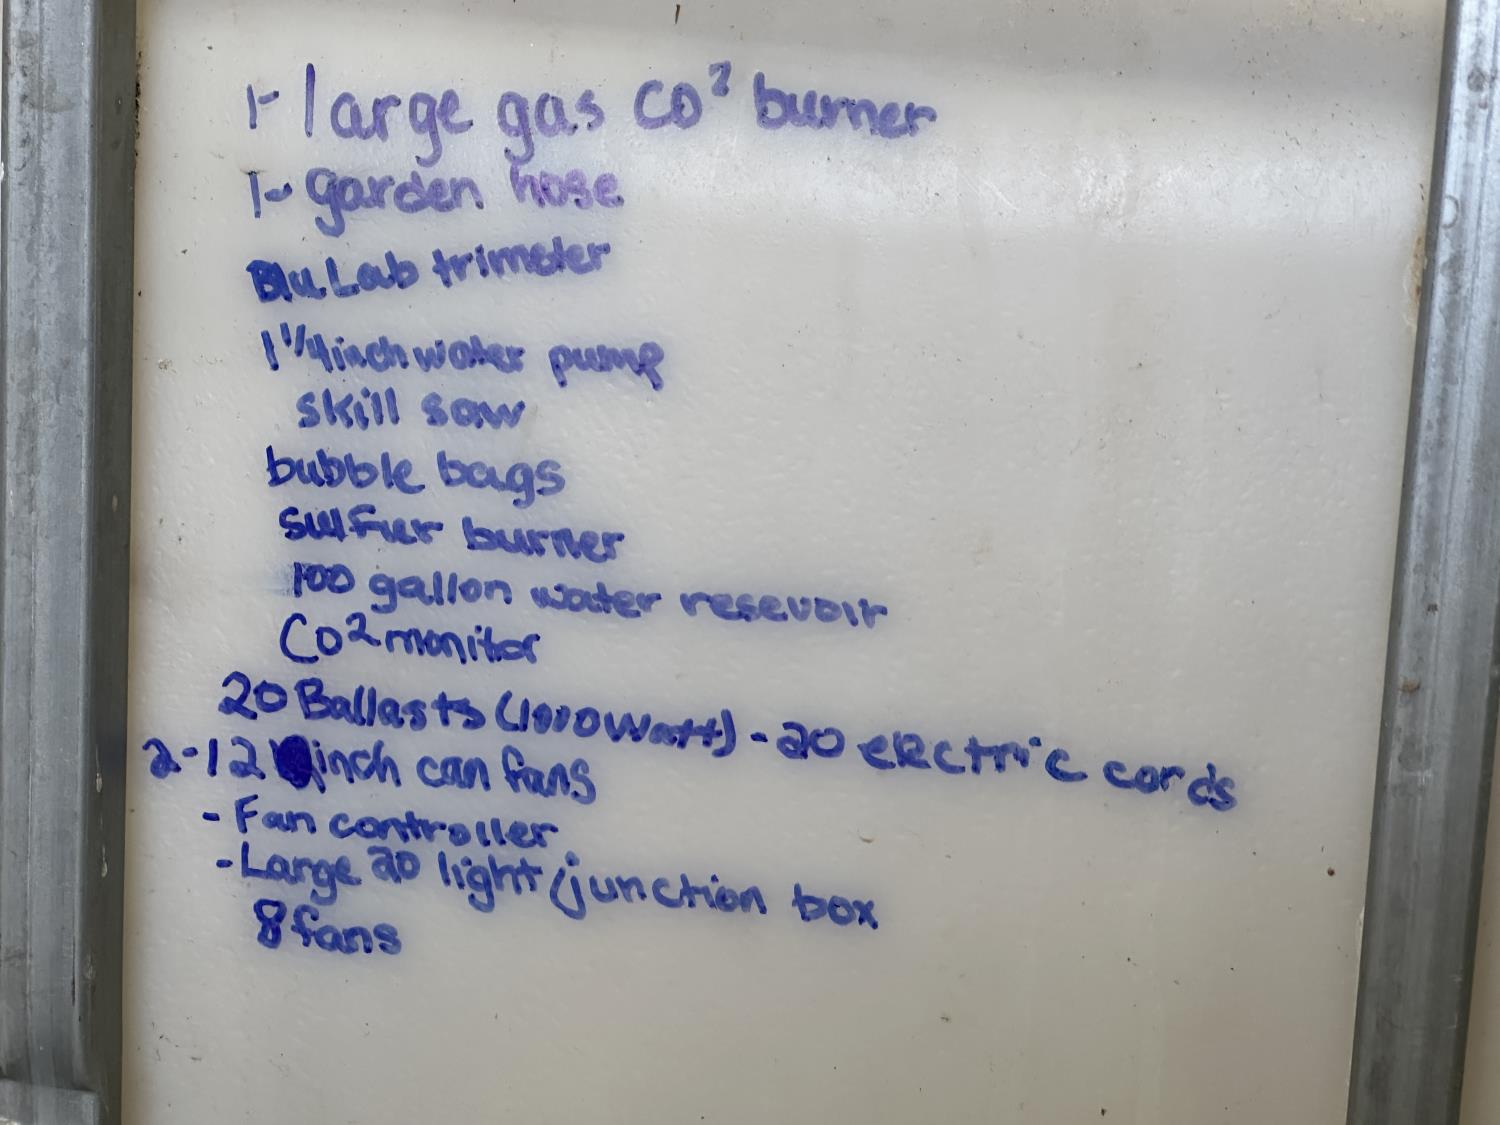 1- large gas CO² burner
1- garden hose
BluLab trimeter
1 1/4 inch water pump
skill saw
bubble bags
sulfur burner
100 gallon water resevoir
CO² monitor
20 Ballasts (1000 watt) - 20 electric cords
2-12 inch can fans
- Fan controller
- Large 20 light junction box
8 fans